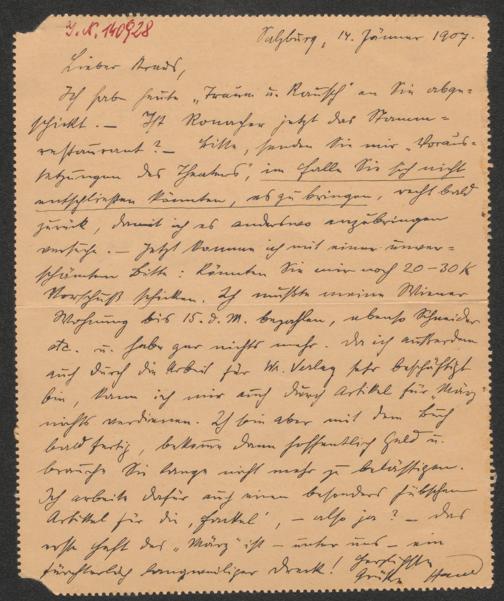 J. N. 140928
Salzburg, 14. Jänner 1907.
Lieber Kraus,
Ich habe heute „Traum u. Rausch" an Sie abge-
schickt. — Ist Ronacher jetzt das Stamm-
restaurant? — Bitte, senden Sie mir „Voraus-
setzungen des Theaters", im Falle Sie sich nicht
entschließen könnten, es zu bringen, recht bald
zurück, damit ich es anderswo anzubringen
versuche. — Jetzt komme ich mit einer unver-
schämten Bitte: könnten Sie mir noch 20–30 K
Vorschuß schicken. Ich mußte meine Wiener
Wohnung bis 15. d. M. bezahlen, ebenso Schneider
etc. u. habe gar nichts mehr. Da ich außerdem
auch durch die Arbeit für W. Verlag sehr beschäftigt
bin, kann ich mir auch durch Artikel für „März"
nichts verdienen. Ich bin aber mit dem Buch
bald fertig, bekomme dann hoffentlich Geld u.
brauche Sie lange nicht mehr zu belästigen.
Ich arbeite dafür auch einen besonders hübschen
Artikel für die ‚Fackel', – also ja? – Das
erste Heft des „März" ist – unter uns – ein
fürchterlich langweiliger Dreck! Herzlichste
Grüße